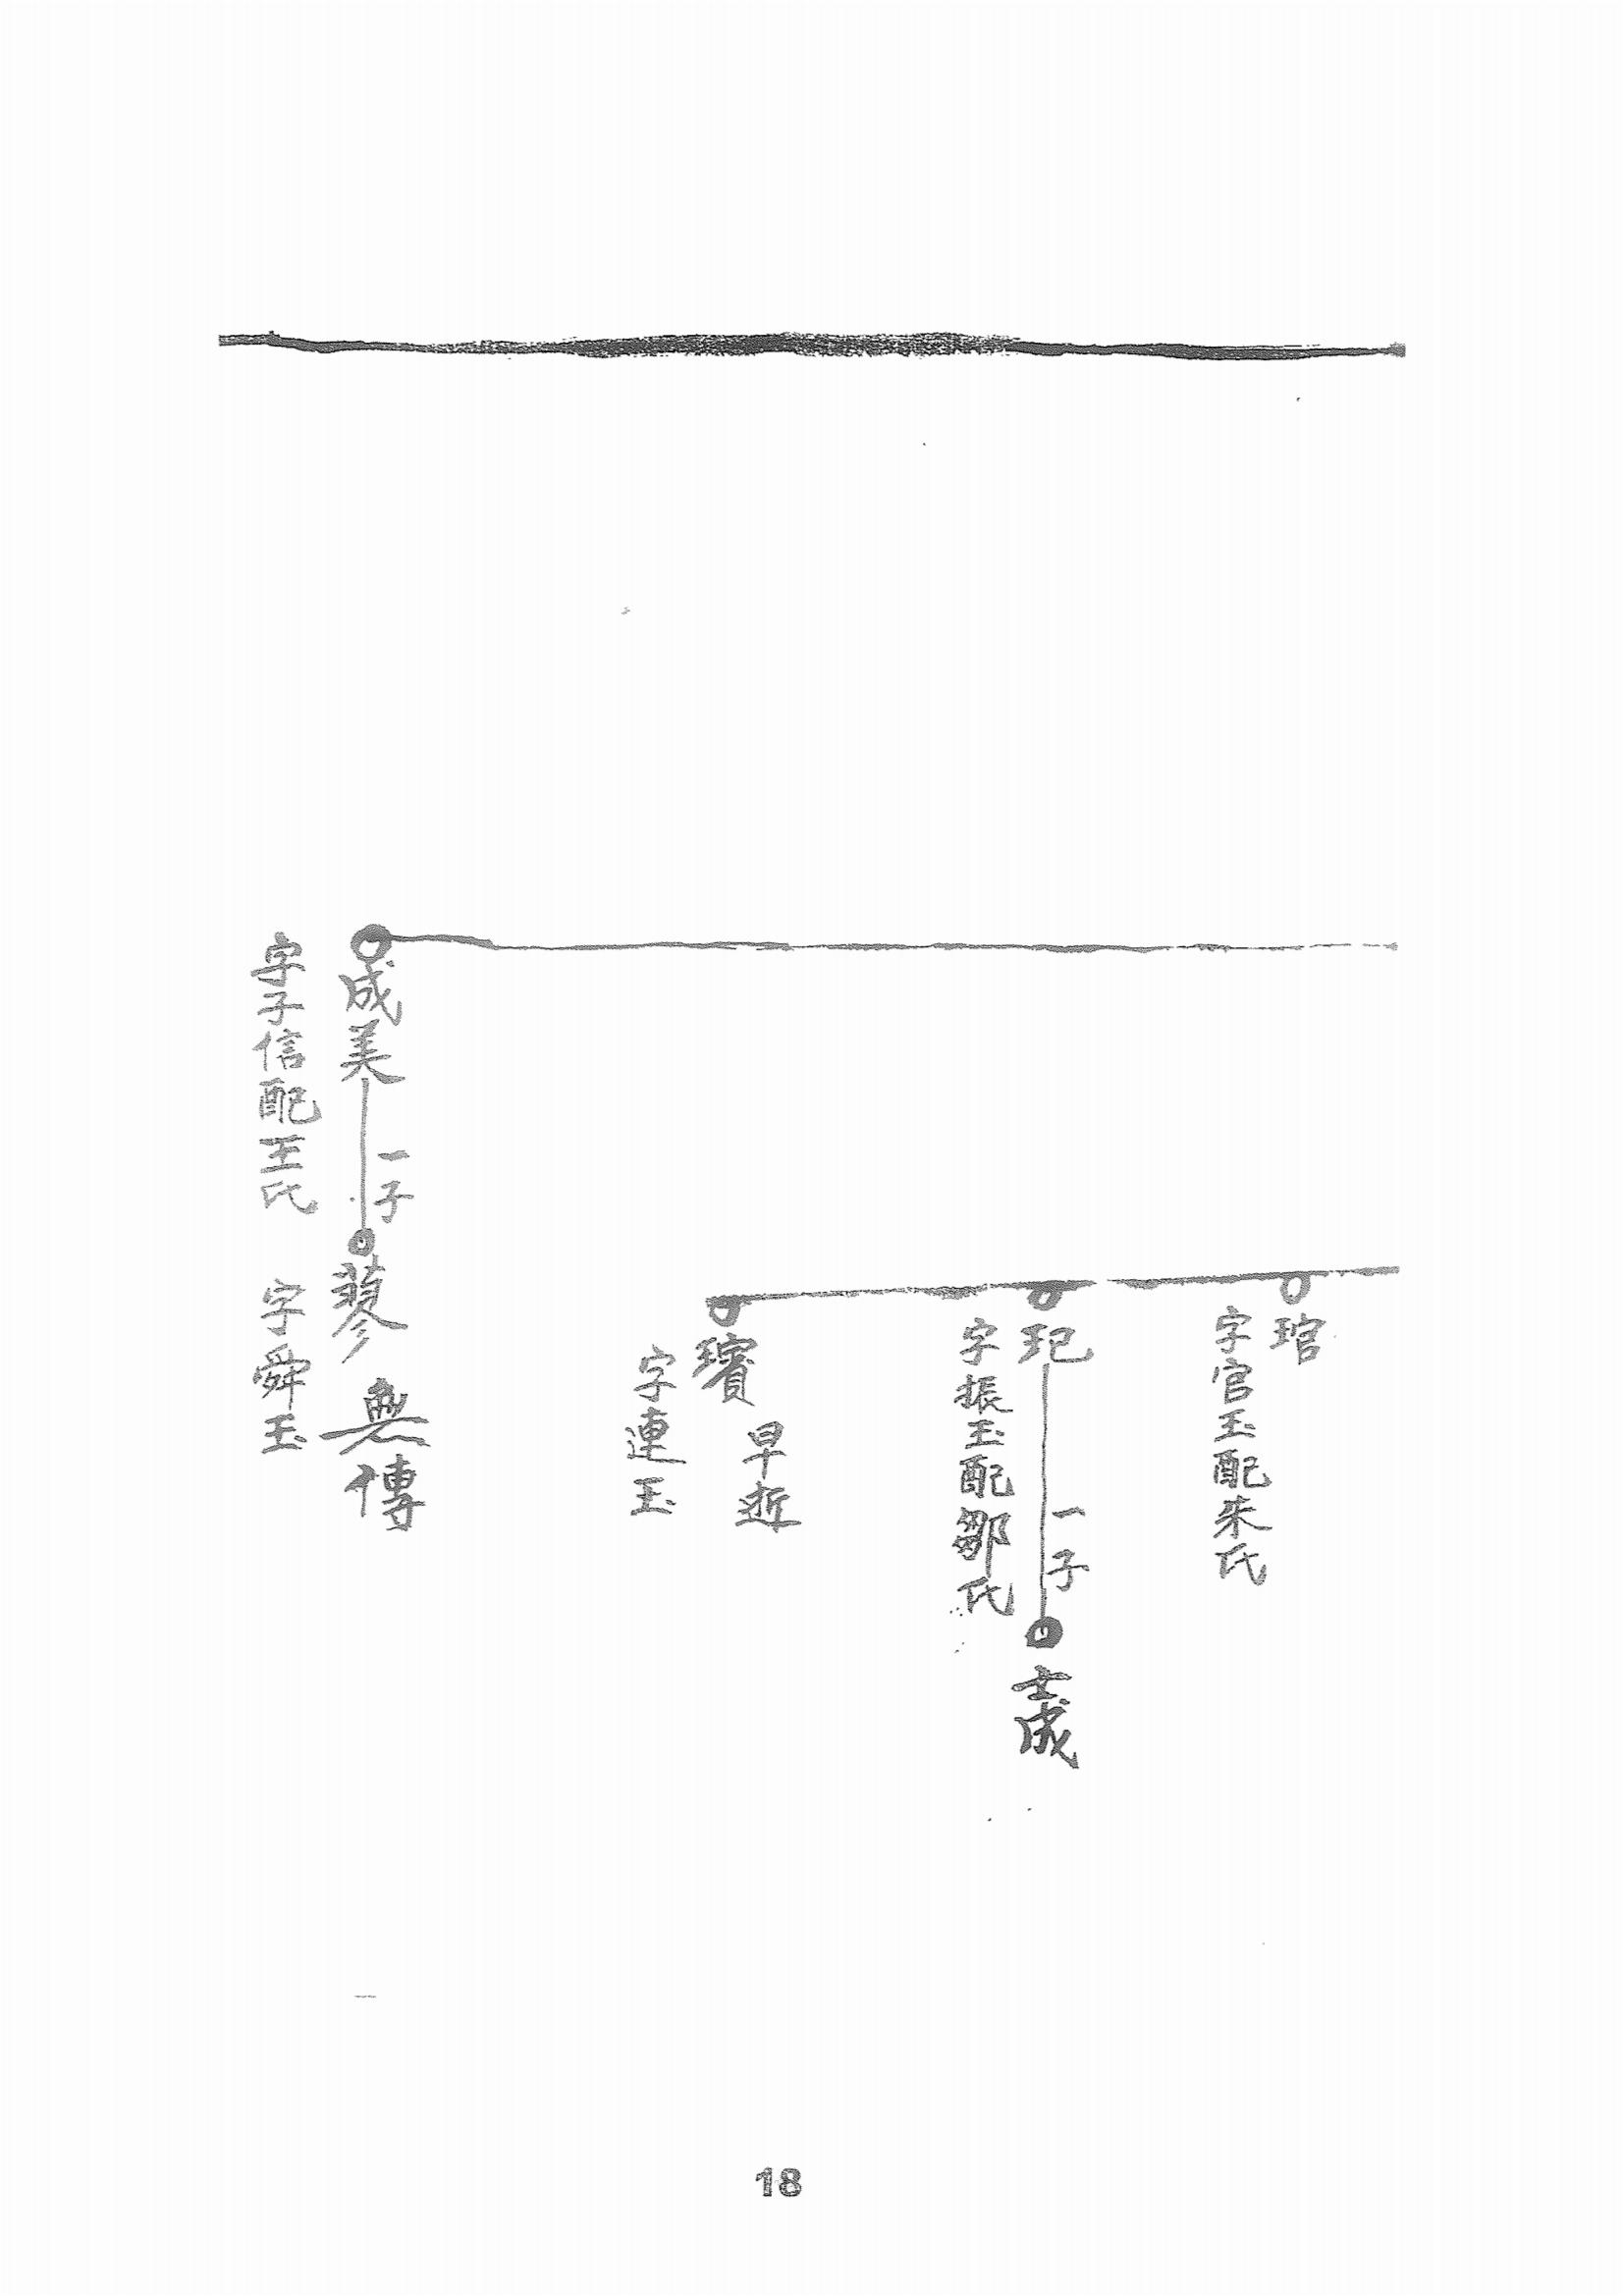 琯
字官玉配朱氏
玘
一子
成
字振玉配鄒氏
璸
早逝
字連玉
成美
一子
蓼
無傳
字子信配王氏
字舜玉
18